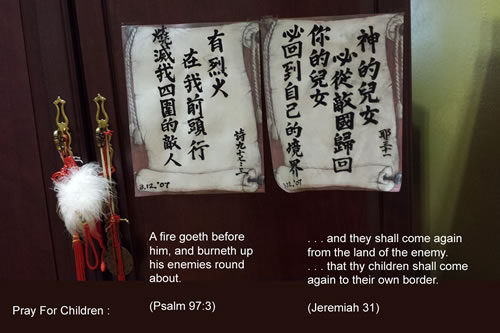 有烈火
在我前頭行
燒滅我四圍的敵人
神的兒女
必從敵國歸回
你的兒女
必回到自己的境界
A fire goeth before
him, and burneth up
his enemies round
about.
(Psalm 97:3)
. . . and they shall come again
from the land of the enemy.
. . . that thy children shall come
again to their own border.
(Jeremiah 31)
Pray For Children :